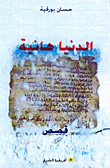 حسان بورقية
الدنيا هانية
قصص
أفريقيا الشرق